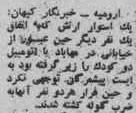 ارومیه - خبرنگار کیهان:
یک استوار ارتش که باتفاق
یک نفر دیگر حین عبور از
خیابانی در مهاباد با اتومبیل
دو کودک را زیر گرفته بود به
ایست پیشمرگان توجهی نکرد
و حین فرار هر دو نفر آنها به
ضرب گلوله کشته شدند.